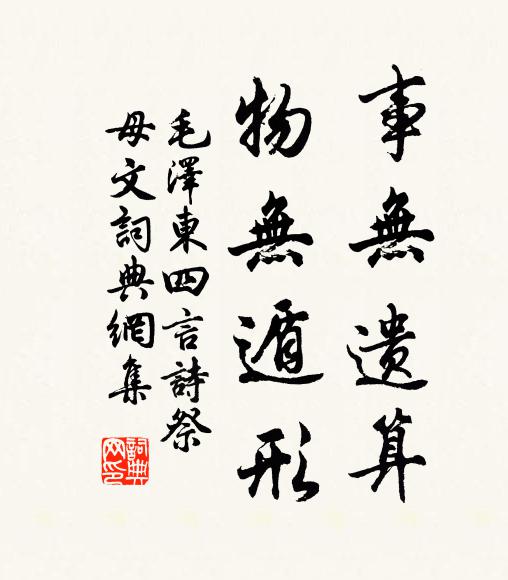 事無遗算
物無遁形
毛澤東四言詩祭
母文詞典網集
詞典网印